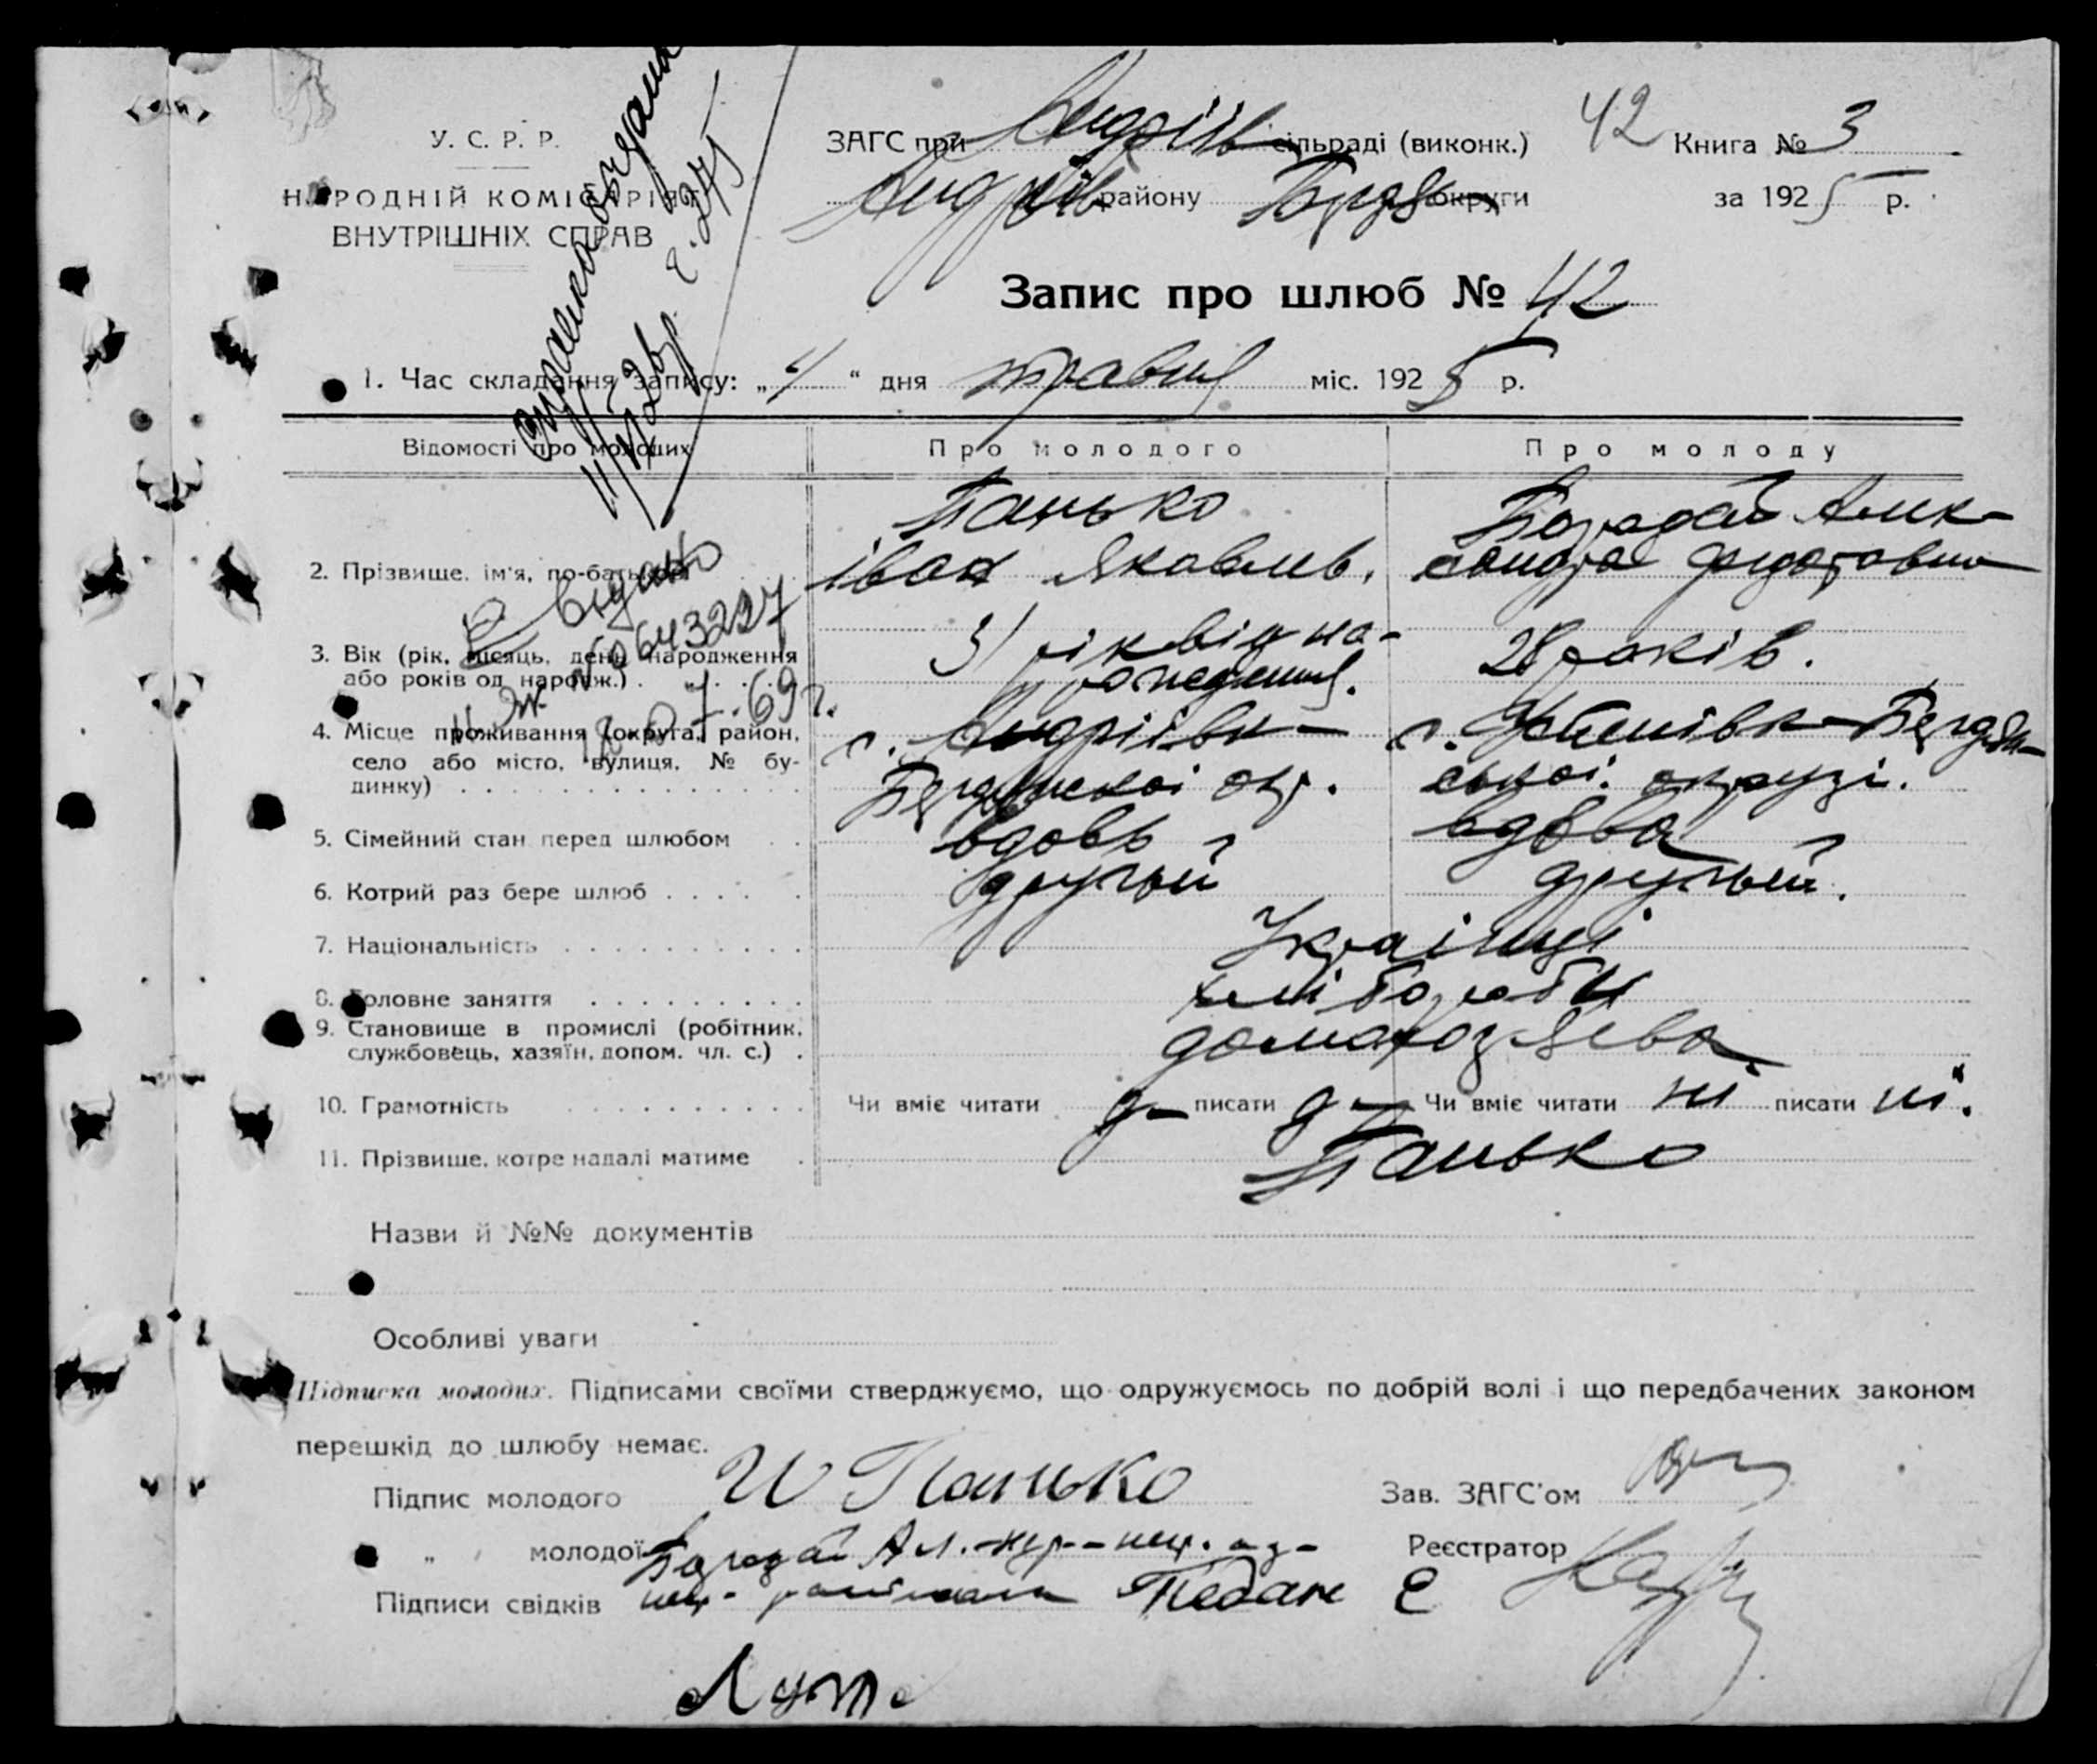 У. С. Р. Р.
НАРОДНІЙ КОМІСАРІЯТ
ВНУТРІШНІХ СПРАВ
ЗАГС при Андріїв сільраді (виконк.) 42 Книга № 3
Андріїв району Бердян округи за 1925 р.
Запис про шлюб № 42
1. Час складання запису: „4“ дня травня міс. 1925 р.
Відомості про молодих Про молодого Про молоду
2. Прізвище, ім'я, по-батькові
Панько
Іван Яковлев.
Бородай Алек-
сандра Федотовна
3. Вік (рік, місяць, день народження
або років од народж.)
31 рік від на-
родження.
28 років.
№ 0643227
69 г.
4. Місце проживання (округа, район,
село або місто, вулиця, № бу-
динку)
с. Андріївк-
Бердянскоі окр.
Бердян-
ськоі округі.
5. Сімейний стан перед шлюбом вдовь вдова
6. Котрий раз бере шлюб другый другый.
7. Національність Українці
8. Головне заняття хліборобы
9. Становище в промислі (робітник,
службовець, хазяїн, допом. чл. с.)
10. Грамотність Чи вміє читати д- писати д- Чи вміє читати ні писати ні.
11. Прізвище, котре надалі матиме Панько
Назви й №№ документів
Особливі уваги
Підписка молодих. Підписами своїми стверджуємо, що одружуємось по добрій волі і що передбачених законом
перешкід до шлюбу немає.
Підпис молодого И Панько Зав. ЗАГС'ом
„ молодої Бородай Ал. Реєстратор
Підписи свідків Педан Е